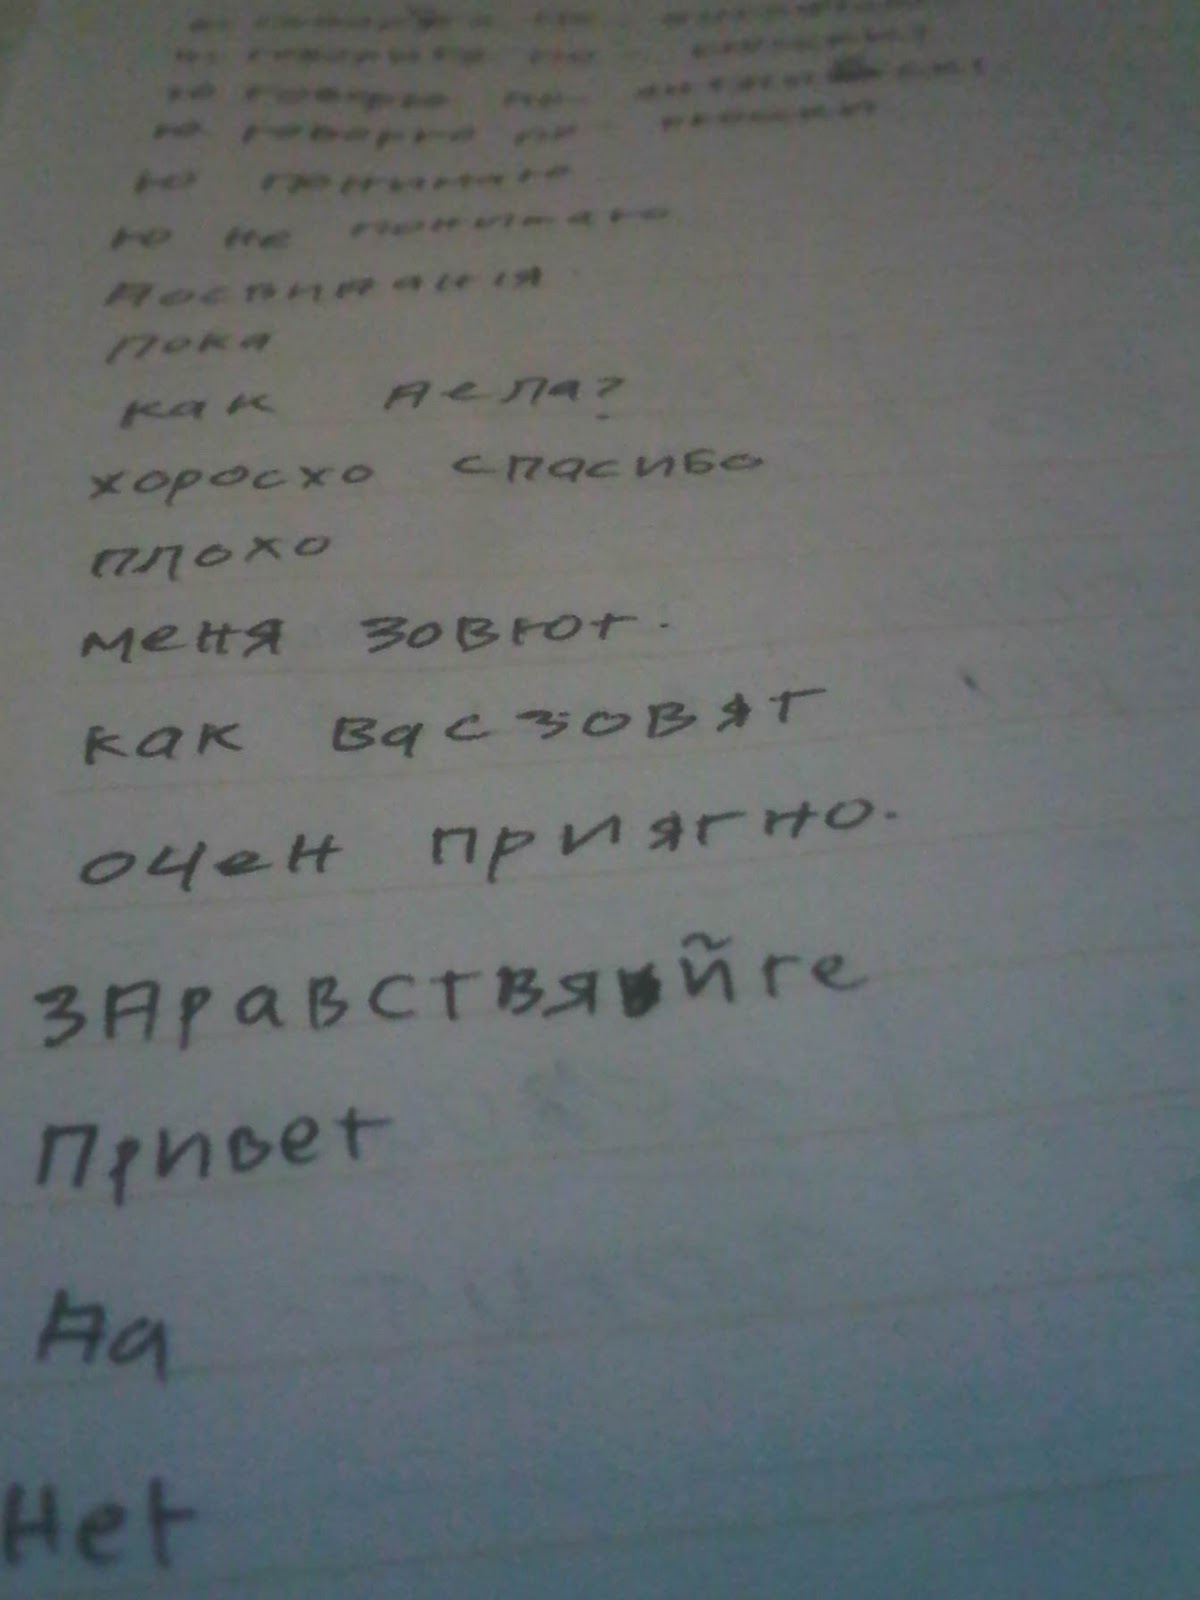 ю говорю по-
ю говорю по-
ю понимаю
ю не понимаю
Досвидания
пока
как дела?
хоросхо спасибо
плохо
меня зовют.
как вас зовят
очен приягно.
здравствяйге
Привет
Да
Нет